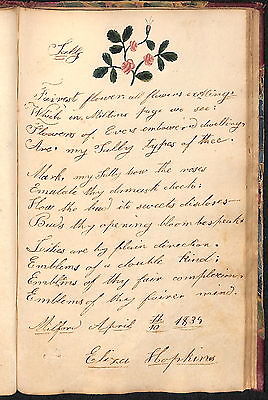 Sally
Fairest flower, all flowers excelling
Which in Miltons page we see:
Flowers of Eves embowered dwelling
Are my Sally types of thee.
Mark, my Sally how the roses
Emulate thy damask cheek;
How the bud its sweets discloses
Buds thy opening bloom bespeak:
Lilies are by plain direction
Emblems of a double kind;
Emblems of thy fair complexion
Emblems of thy fairer mind.
Milford April 10th 1839
Eliza Hopkins